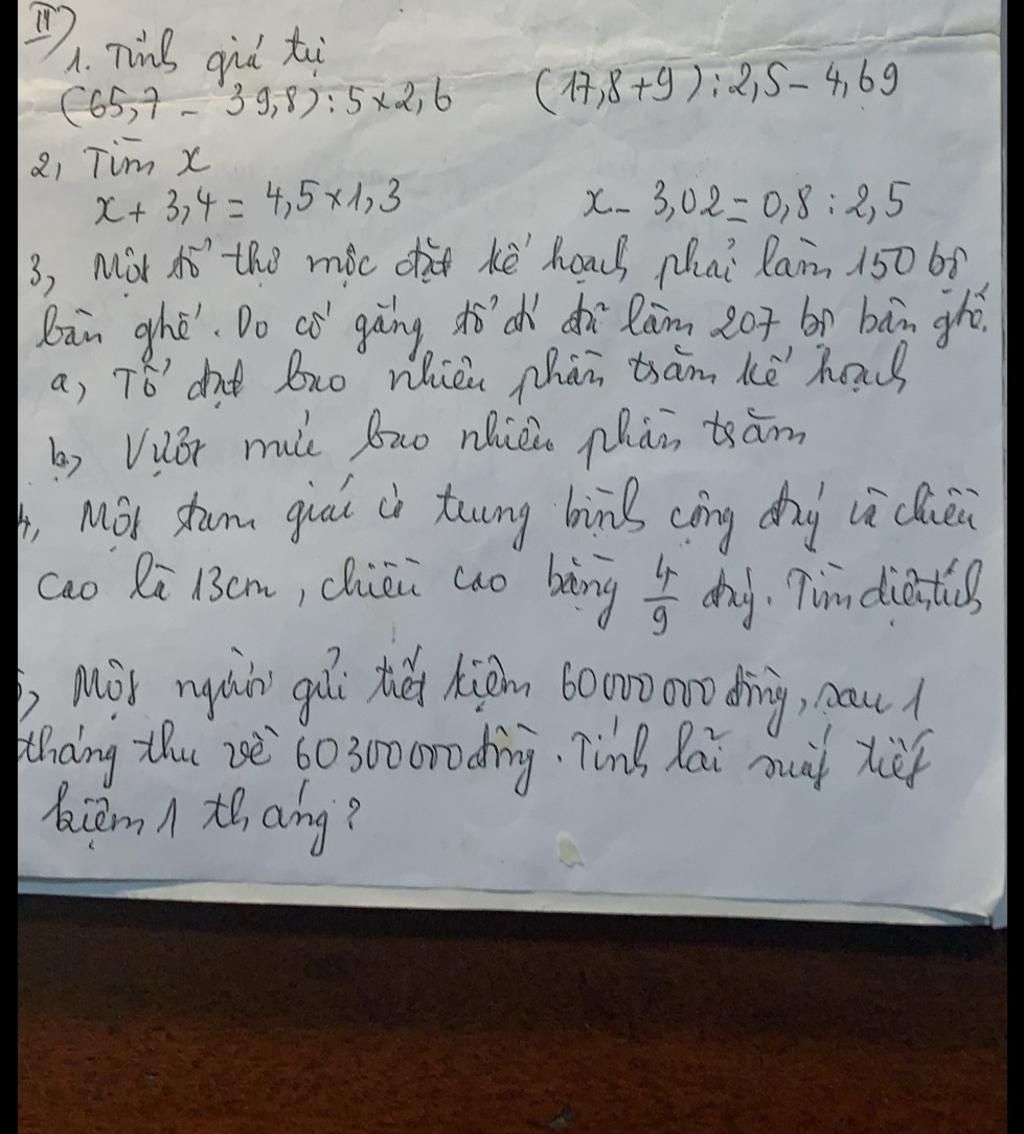 II)
1. Tính giá trị
(65,7 - 39,8) : 5 x 2,6 (17,8 + 9) : 2,5 - 4,69
2, Tìm x
x + 3,4 = 4,5 x 1,3 x - 3,02 = 0,8 : 2,5
3, Một tổ thợ mộc đặt kế hoạch phải làm 150 bộ
bàn ghế. Do cố gắng tổ đó đã làm 207 bộ bàn ghế.
a, Tổ đạt bao nhiêu phần trăm kế hoạch
b, Vượt mức bao nhiêu phần trăm
4, Một tam giác có trung bình cộng đáy và chiều
cao là 13cm, chiều cao bằng 4/9 đáy. Tìm diện tích
5, Một người gửi tiết kiệm 60000000 đồng, sau 1
tháng thu về 60300000 đồng. Tính lãi suất tiết
kiệm 1 tháng?